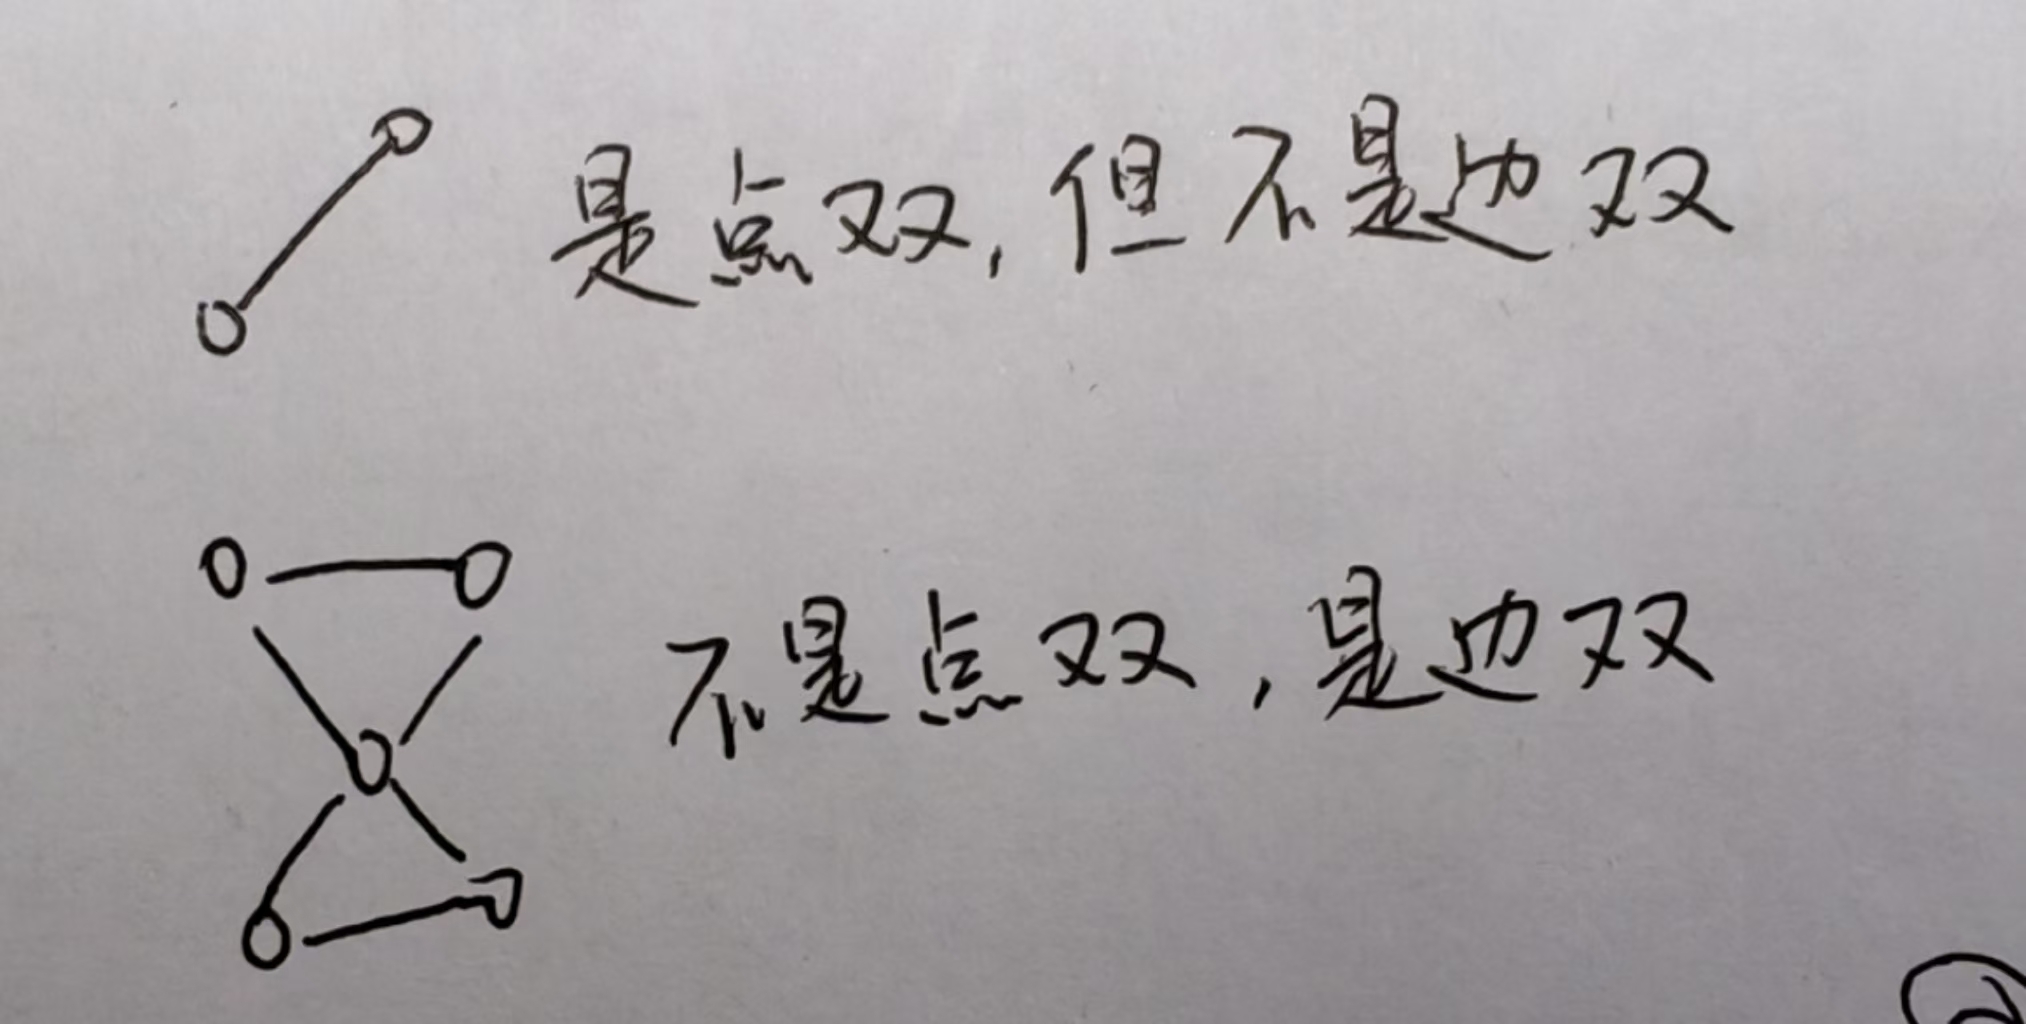 是点双,但不是边双
不是点双,是边双